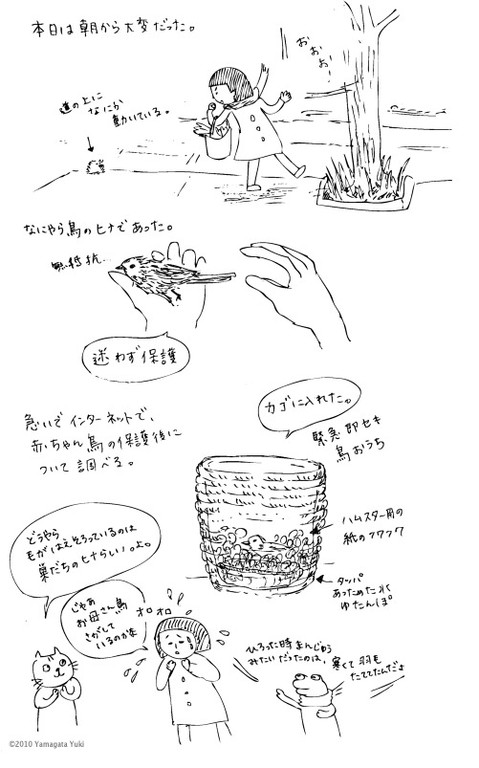 本日は朝から大変だった。
おぉぉ!
道の上に
なにか
動いている。
なにやら鳥のヒナであった。
無抵抗…
迷わず保護
急いでインターネットで、
赤ちゃん鳥の保護後に
ついて調べる。
カゴに入れた。
緊急即セキ
鳥おうち
ハムスター用の
紙のフワフワ
タッパ
あっためた水
ゆたんぽ
どうやら
毛がはえそろっているのは
巣だちのヒナらしいのよ。
じゃあ
お母さん鳥
さがして
いるのかな
オロオロ
ひろった時まんじゅう
みたいだったのは、寒くて羽毛
たててたんだよ
©2010 Yamagata Yuki